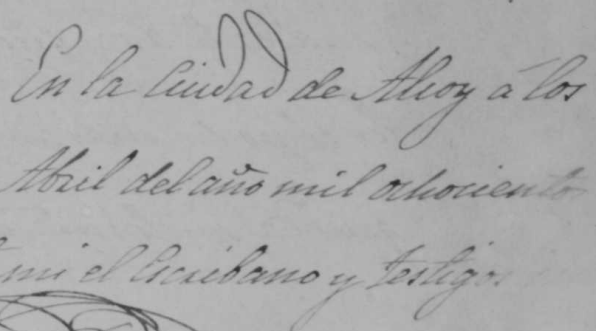 En la Ciudad de Alcoy á los
Abril del año mil ochocientos
mi el Escribano y testigos